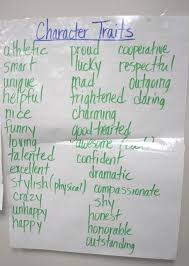 Character Traits
athletic proud cooperative
smart lucky respectful
unique mad outgoing
helpful frightened daring
nice charming
funny good hearted
loving awesome
talented confident
excellent dramatic
stylish (physical) compassionate
crazy shy
unhappy honest
happy honorable
outstanding